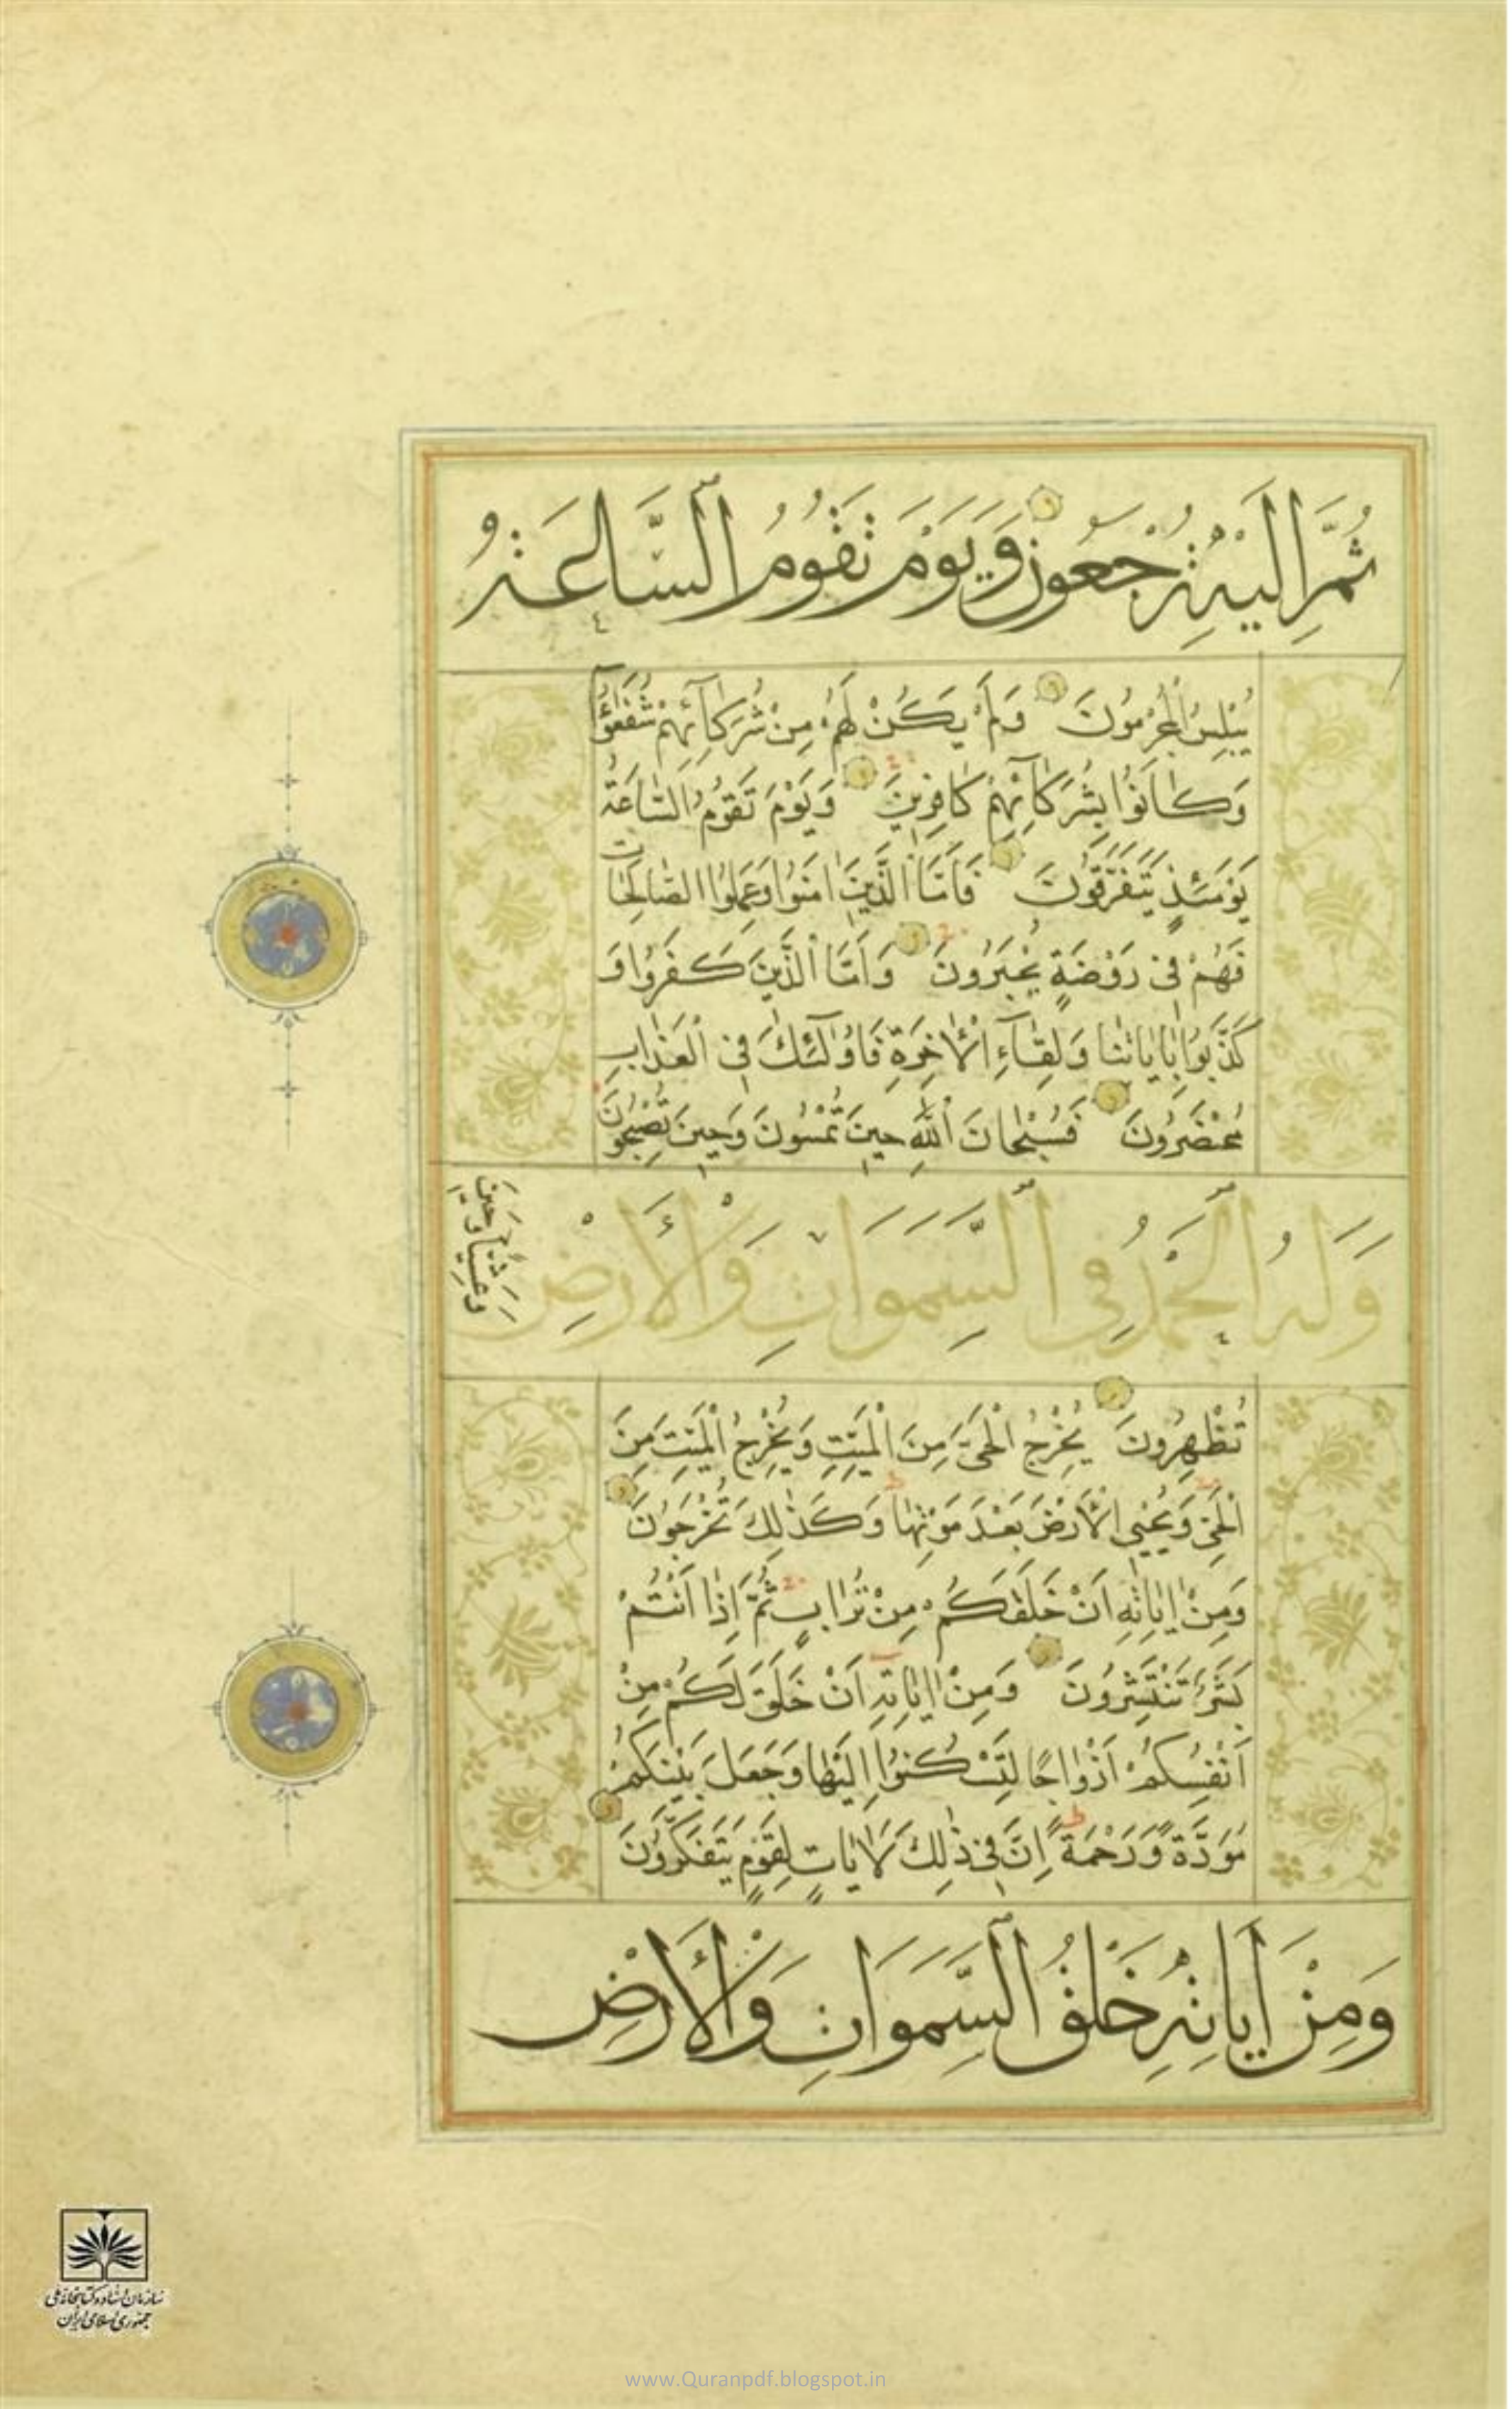 ثُمَّ اِلَيْهِ تُرْجَعُونَ وَيَوْمَ تَقُومُ السَّاعَةُ
يُبْلِسُ الْمُجْرِمُونَ وَلَمْ يَكُنْ لَهُمْ مِنْ شُرَكَآئِهِمْ شُفَعٰٓؤُا
وَكَانُوا بِشُرَكَآئِهِمْ كَافِرِينَ وَيَوْمَ تَقُومُ السَّاعَةُ
يَوْمَئِذٍ يَتَفَرَّقُونَ فَاَمَّا الَّذِينَ اٰمَنُوا وَعَمِلُوا الصَّالِحَاتِ
فَهُمْ فِى رَوْضَةٍ يُحْبَرُونَ وَاَمَّا الَّذِينَ كَفَرُوا وَ
كَذَّبُوا بِاٰيَاتِنَا وَلِقَآءِ الْاٰخِرَةِ فَاُولٰٓئِكَ فِى الْعَذَابِ
مُحْضَرُونَ فَسُبْحَانَ اللّٰهِ حِينَ تُمْسُونَ وَحِينَ تُصْبِحُونَ
وَلَهُ الْحَمْدُ فِي السَّمٰوَاتِ وَالْأَرْضِ
وَعَشِيًّا وَحِينَ
تُظْهِرُونَ يُخْرِجُ الْحَىَّ مِنَ الْمَيِّتِ وَيُخْرِجُ الْمَيِّتَ مِنَ
الْحَىِّ وَيُحْيِى الْاَرْضَ بَعْدَ مَوْتِهَا وَكَذٰلِكَ تُخْرَجُونَ
وَمِنْ اٰيَاتِهِ اَنْ خَلَقَكُمْ مِنْ تُرَابٍ ثُمَّ اِذَا اَنْتُمْ
بَشَرٌ تَنْتَشِرُونَ وَمِنْ اٰيَاتِهِ اَنْ خَلَقَ لَكُمْ مِنْ
اَنْفُسِكُمْ اَزْوَاجًا لِتَسْكُنُوا اِلَيْهَا وَجَعَلَ بَيْنَكُمْ
مَوَدَّةً وَرَحْمَةً اِنَّ فِى ذٰلِكَ لَاٰيَاتٍ لِقَوْمٍ يَتَفَكَّرُونَ
وَمِنْ اٰيَاتِهِ خَلْقُ السَّمٰوَاتِ وَالْأَرْضِ
سازمان اسناد و کتابخانه ملی
جمهوری اسلامی ایران
www.Quranpdf.blogspot.in